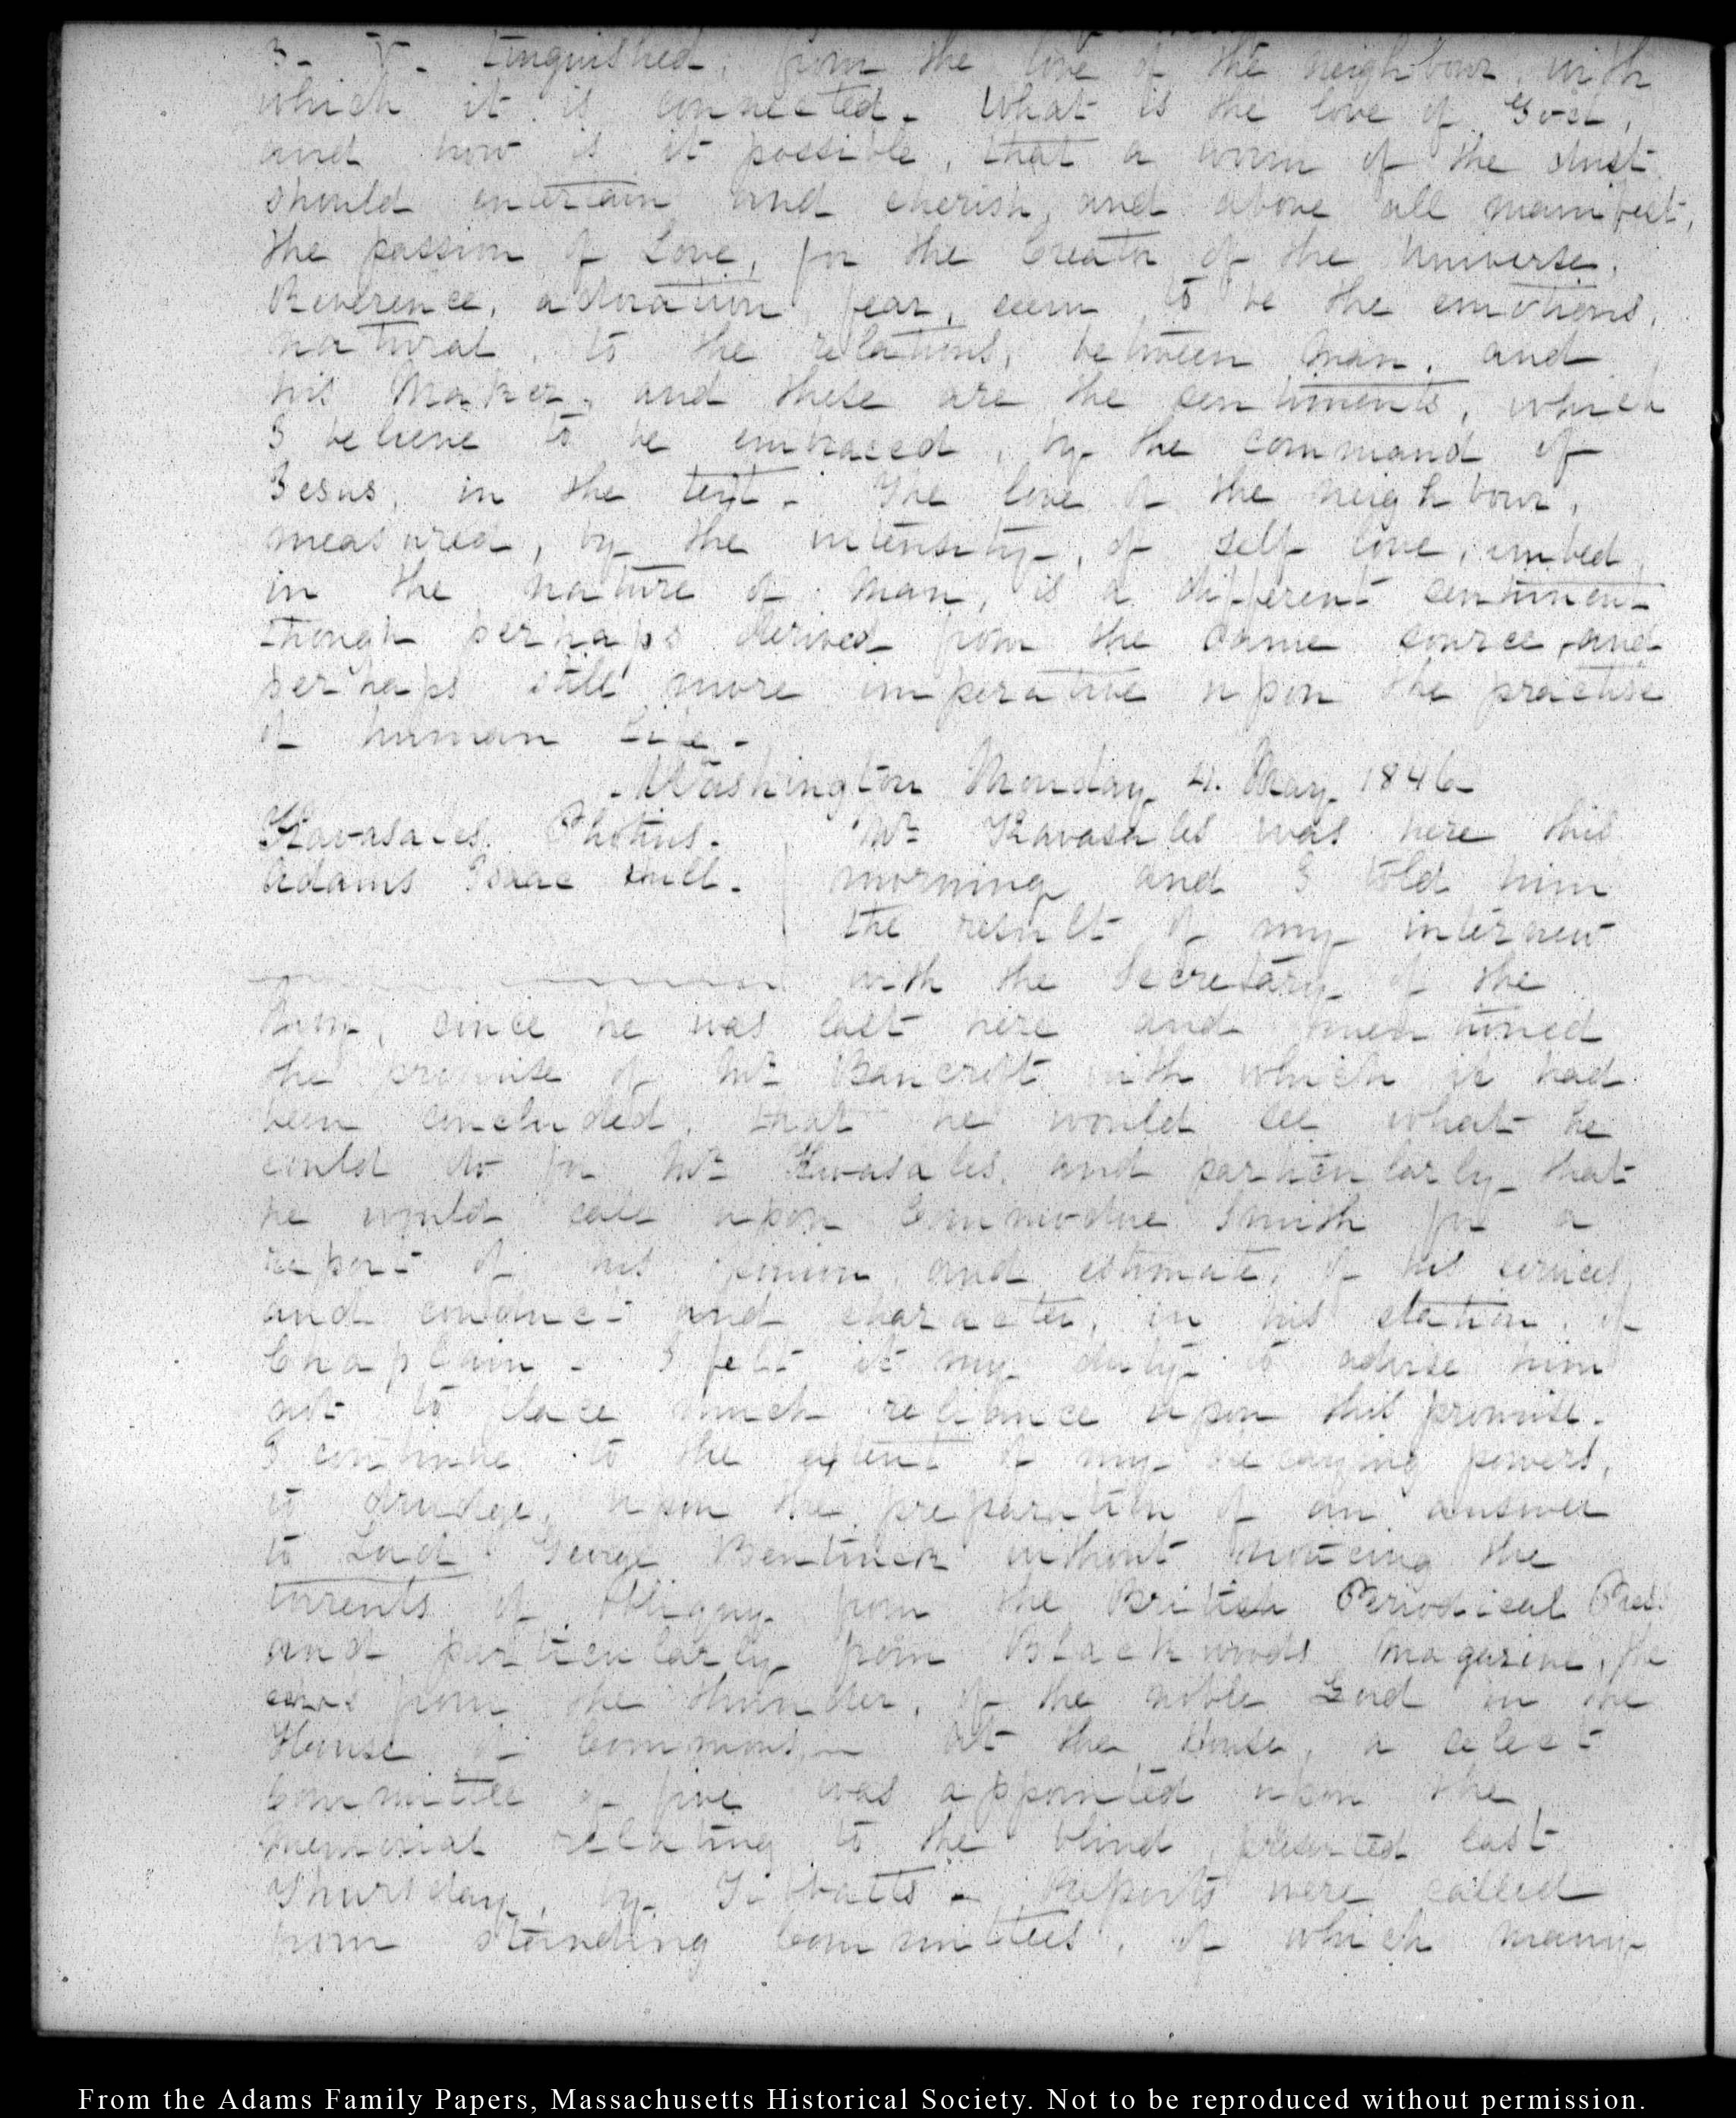 3- V- tinguished, from the love of the neighbour, with
which it is connected. What is the love of God,
and how is it possible, that a worm of the dust
should entertain and cherish, and above all manifest,
the passion of Love, for the Creator of the Universe.
Reverence, adoration, fear, seem to be the emotions,
natural, to the relations, between man, and
his Maker, and these are the sentiments, which
I believe to be embraced, by the command of
Jesus, in the text. The love of the neighbour,
measured, by the intensity, of self love, imbed
in the nature of man, is a different sentiment
though perhaps derived from the same source, and
perhaps still more imperative upon the practise
of human Life.-
Washington Monday 4. May 1846-
Kavasales Photius.
Adams Isaac Hull.
Mr Kavasales was here this
morning and I told him
the result of my interview
with the Secretary of the
Navy, since he was last here and mentioned
the promise of Mr Bancroft with which it had
been concluded, that he would see what he
could do for Mr Kavasales, and particularly that
he would call upon Commodore Smith for a
report of his opinion, and estimate, of his services,
and conduct and character, in his station, of
Chaplain - I felt it my duty to advise him
not to place much reliance upon this promise.
I continue to the extent of my decaying powers,
to drudge, upon the preparation of an answer
to Lord George Bentinck without noticing the
torrents of obliquy from the British Periodical Press
and particularly from Blackwoods Magazine, the
echos from the thunder, of the noble Lord in the
House of Commons,- At the House, a select
Committee of five was appointed upon the
Memorial relating to the blind, presented last
Thursday, by Tibbatts - Reports were called
from standing Committees, of which many
From the Adams Family Papers, Massachusetts Historical Society. Not to be reproduced without permission.